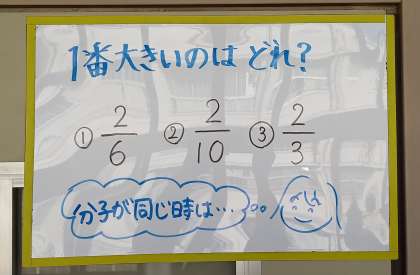 1番大きいのは どれ?
① 2/6 ② 2/10 ③ 2/3
分子が同じ時は…